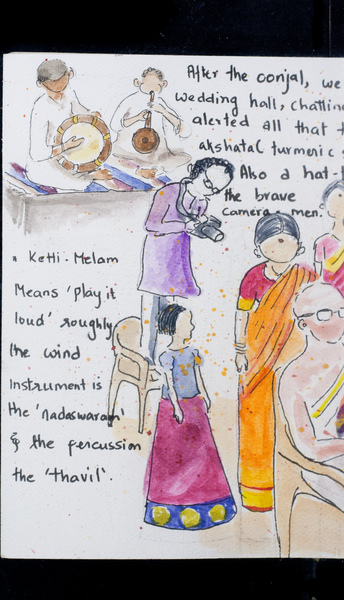 After the oonjal, we
wedding hall, chatting
alerted all that
akshata( turmeric
Also a hat-
the brave
camera-men.
" Ketti-Melam
Means 'play it
loud' roughly
the wind
instrument is
the 'nadaswaram'
& the percussion
the 'thavil'.